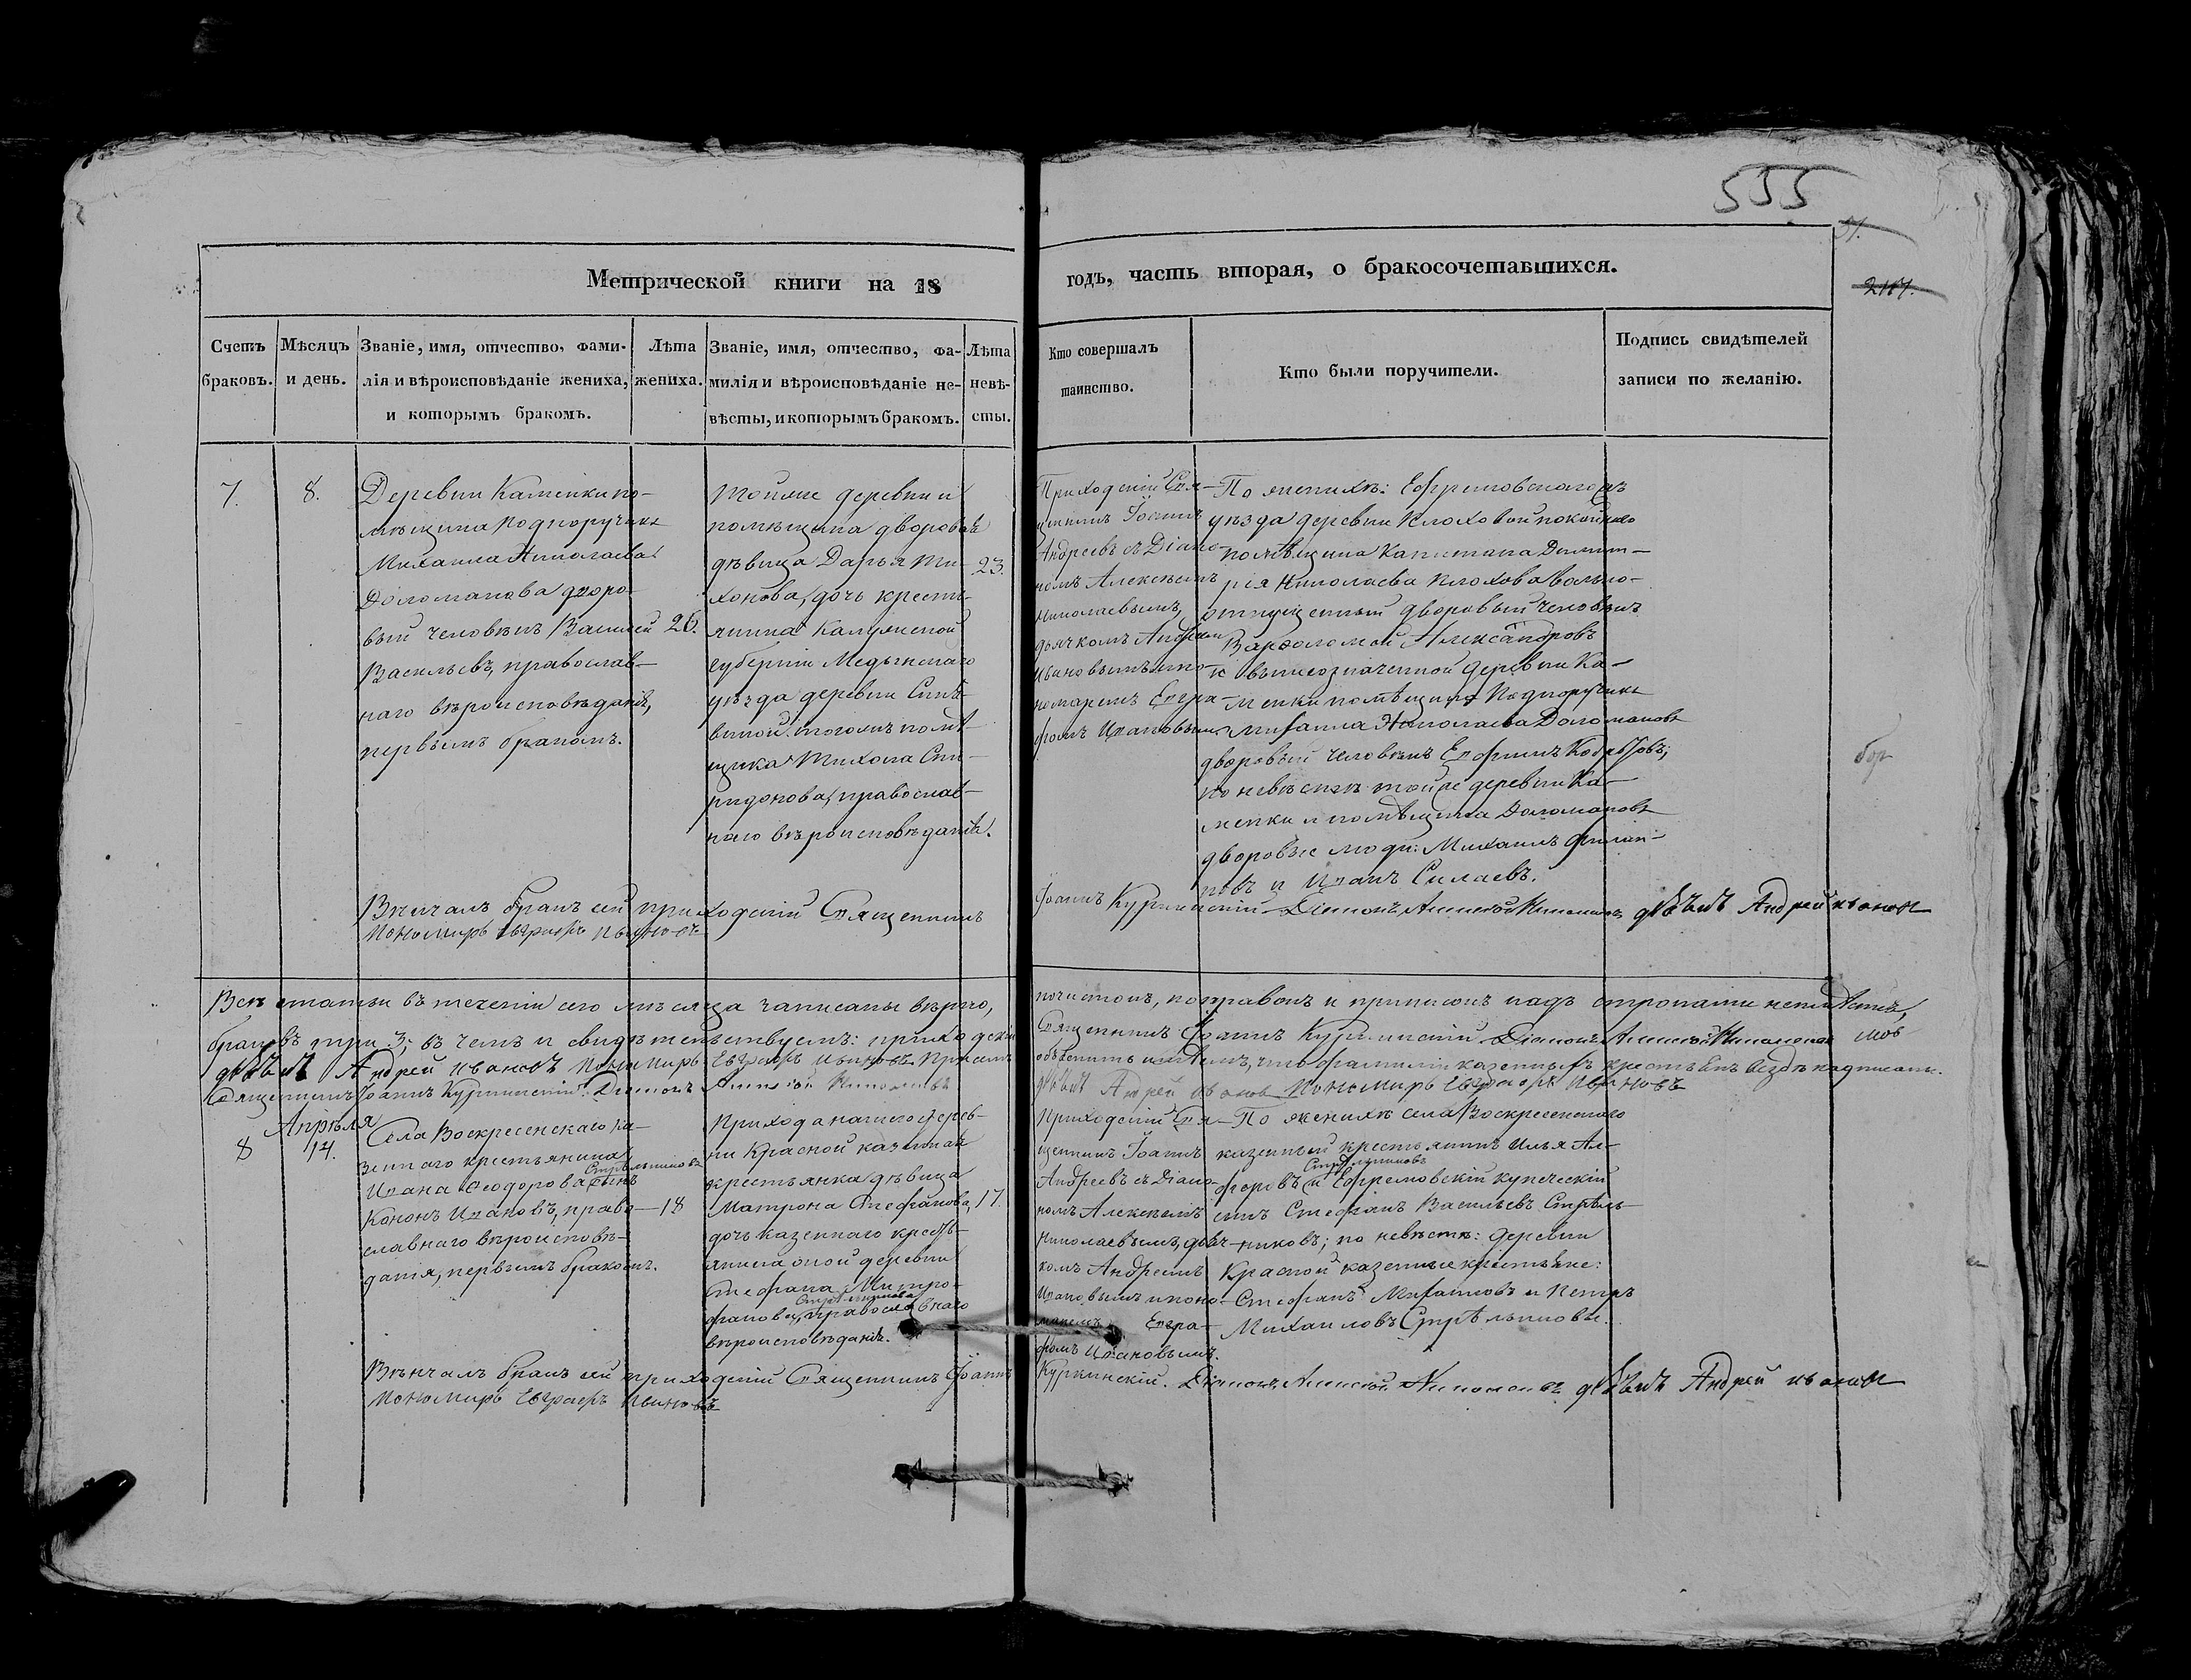 555
91.
2187.
Метрической книги на 18
годъ, часть вторая, о бракосочетавшихся.
Счетъ
браковъ.
Мѣсяцъ
и день.
Званіе, имя, отчество, фами-
лія и вѣроисповѣданіе жениха,
и которымъ бракомъ.
Лѣта
жениха.
Званіе, имя, отчество, фа-
милія и вѣроисповѣданіе не-
вѣсты, и которымъ бракомъ.
Лѣта
невѣ-
сты.
Кто совершалъ
таинство.
Кто были поручители.
Подпись свидѣтелей
записи по желанію.
7.
8.
Деревни Каменки по-
мѣщика Подпоручика
Михаила Николаева
Доломанова дворо-
вый человѣкъ Василей
Васильевъ, православ-
наго вѣроисповѣданія,
первымъ бракомъ.
26.
Тойже деревни и
помѣщика дворовая
дѣвица Дарья Ти-
хонова, дочь кресть-
янина Калужской
губерніи Медынскаго
уѣзда деревни
тогожъ помѣ-
щика Тихона Спи-
ридонова, православ-
наго вѣроисповѣданія.
23.
Приходскій Свя-
щенникъ Іоаннъ
Андреевъ съ Діако-
номъ Алексѣемъ
Николаевымъ,
дьячкомъ Андреем
Ивановымъ и по-
номаремъ Евгра-
фомъ Ивановымъ
По женихѣ: Ефремовскаго
уѣзда деревни Клоховой покойнаго
помѣщика Капитана Димит-
рія Николаева Клохова вольно-
отпущенный дворовый человѣкъ
Варфоломей Александровъ
и вышеозначенной деревни Ка-
менки помѣщика Подпоручика
Михаила Николаева Доломанова
дворовый человѣкъ Ефимъ
по невѣстѣ тойже деревни Ка-
менки и помѣщика Доломанова
дворовые люди: Михаилъ Филип-
повъ и Иванъ Силаевъ.
Вѣнчалъ бракъ сей приходскій Священникъ
Іоаннъ Куркинскій Діаконъ Алексѣй Николаевъ дьячекъ Андрей Ивановъ
Пономарь Евграфъ Ивановъ
Всѣ статьи въ теченіи сего мѣсяца записаны вѣрно,
почистокъ, поправокъ и приписокъ надъ строками нетъ,
браковъ три 3; въ чемъ и свидѣтельствуемъ: приходскій
Священникъ Іоаннъ Куркинскій Діаконъ Алексѣй Николаевъ
дьячекъ Андрей Ивановъ Пономарь Евграфъ Ивановъ
объяснить имѣемъ, что фамиліи казенныхъ крестьянъ вездѣ надписаны.
Священникъ Іоаннъ Куркинскій. Діаконъ Алексѣй Николаевъ
дьячекъ Андрей Ивановъ Пономарь Евграфъ Ивановъ
Апрѣля
8
14.
Села Воскресенскаго ка-
зеннаго крестьянина
Стрѣльникова
Ивана Ѳеодорова сынъ
Кононъ Ивановъ, право-
славнаго вѣроисповѣ-
данія, первымъ бракомъ.
18
Прихода нашего дерев-
ни Красной казенная
крестьянка дѣвица
Матрона Стефанова,
дочь казеннаго кресть-
янина оной деревни
Стефана Митро-
Стрѣльникова
фанова, православнаго
вѣроисповѣданія.
17.
Приходскій Свя-
щенникъ Іоаннъ
Андреевъ съ Діако-
номъ Алексѣемъ
Николаевымъ, дьяч-
комъ Андреемъ
Ивановымъ и поно-
маремъ Евгра-
фомъ Ивановымъ.
По женихѣ села Воскресенскаго
казенный крестьянинъ Илья Ал-
Стрѣльниковъ
феровъ и Ефремовскій купеческій
сынъ Стефанъ Васильевъ Стрѣль-
никовъ; по невѣстѣ: деревни
Красной казенные крестьяне:
Стефанъ Михаиловъ и Петръ
Михаиловъ Стрѣльниковы.
Вѣнчалъ бракъ сей приходскій Священникъ Іоаннъ
Куркинскій. Діаконъ Алексѣй Николаевъ дьячекъ Андрей Ивановъ
Пономарь Евграфъ Ивановъ